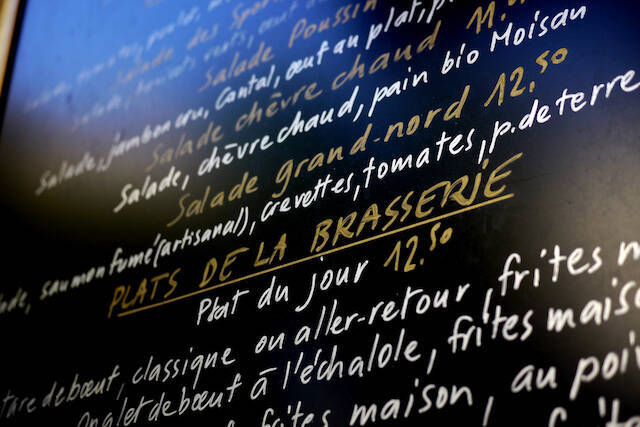 Salade des Spor
Salade, haricots verts, œuf au plat, p
Salade Poussin
Salade, jambon cru, Cantal, œuf au plat, p
Salade chèvre chaud 11.
Salade, chèvre chaud, pain bio Moisan
Salade grand-nord 12.50
ade, saumon fumé (artisanal), crevettes, tomates, p. de terre
PLATS DE LA BRASSERIE
Plat du jour 12.50
tare de bœuf, classique ou aller-retour, frites m
Onglet de bœuf à l'échalole, frites maiso
frites maison, au poi